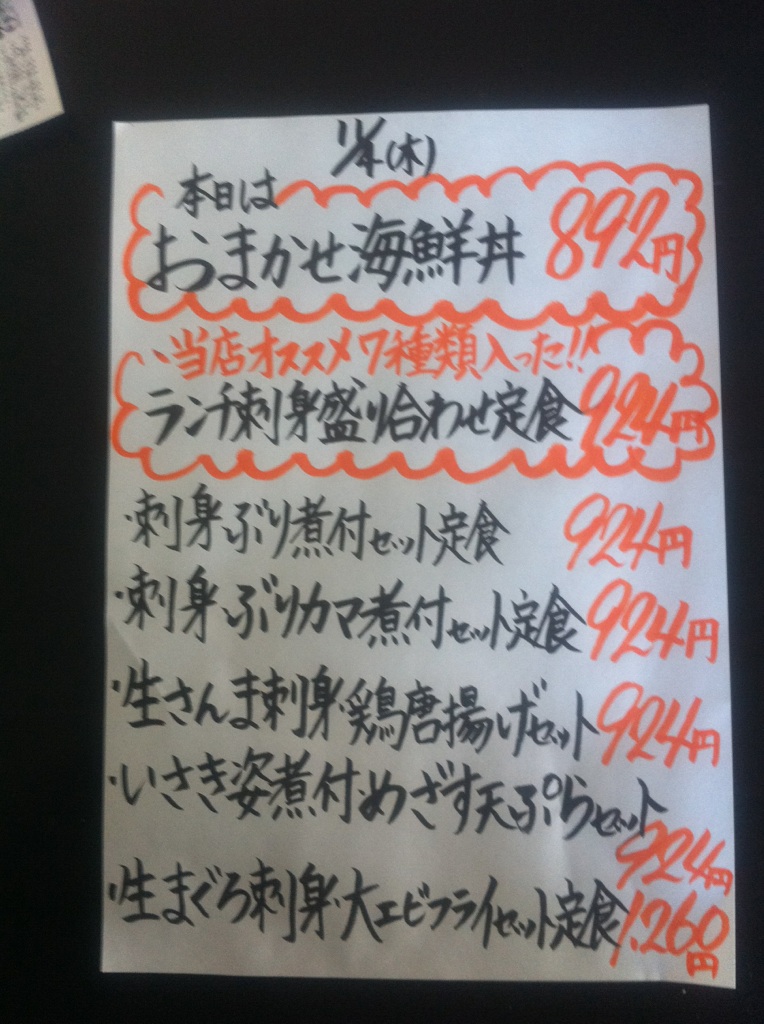 11/4(木)
本日は
おまかせ海鮮丼 892円
当店オススメ7種類入った!!
ランチ刺身盛り合わせ定食 924円
・刺身ぶり煮付セット定食 924円
・刺身ぶりカマ煮付セット定食 924円
・生さんま刺身・鶏唐揚げセット 924円
・いさき姿煮付・めざす天ぷらセット
924円
・生まぐろ刺身・大エビフライセット定食 1.260
円